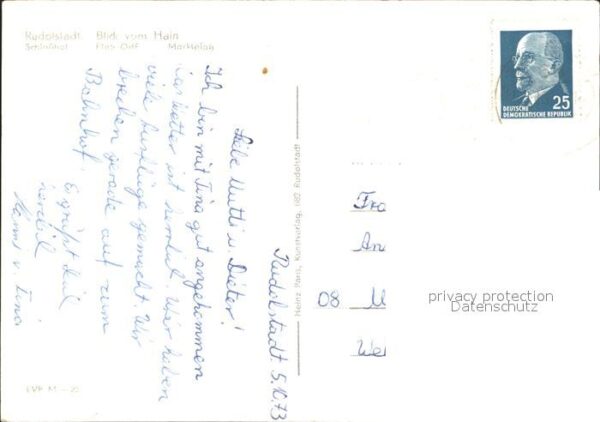 Rudolstadt Blick vom Hain
Schloßhof Marktplatz
Rudolstadt. 5.10.73
Liebe Mutti u. Dieter!
Ich bin mit Tina gut angekommen
das Wetter ist herrlich. Wir haben
viele Ausflüge gemacht. Wir
brechen gerade auf zum
Bahnhof.
Es grüßt Dich
herzlich
Hans u. Tina
Heinz Paris, Kunstverlag, 1182 Rudolstadt
25
DEUTSCHE
DEMOKRATISCHE REPUBLIK
Fra
An
08 M
We
privacy protection
Datenschutz